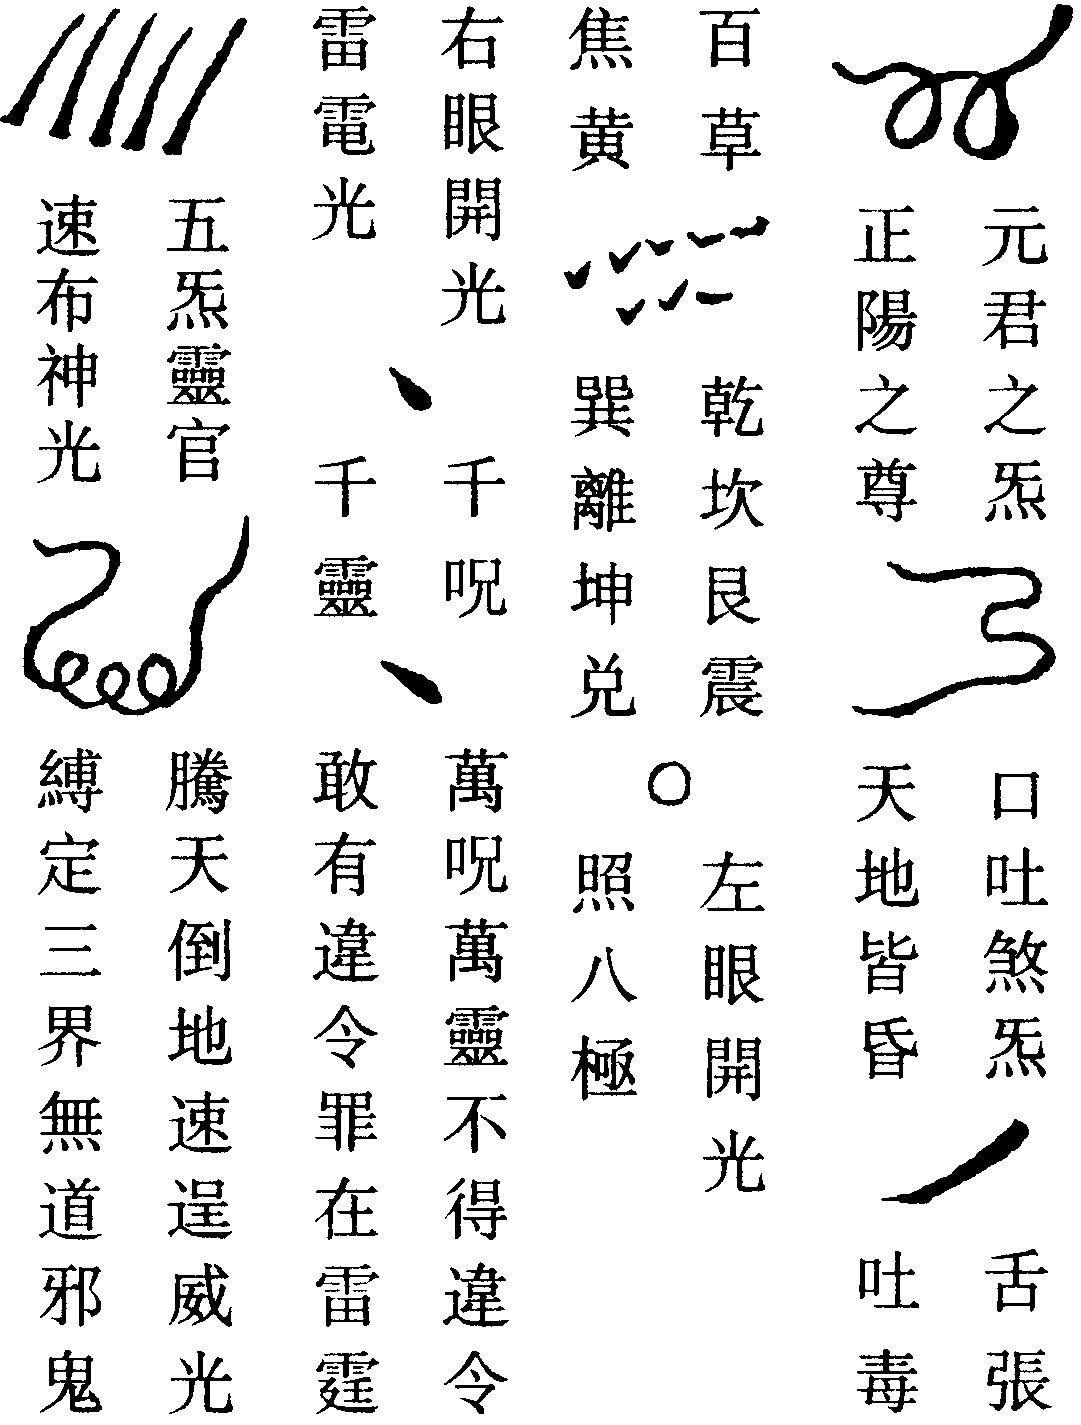 元君之炁
正陽之尊
口吐煞炁
天地皆昏
舌張
吐毒
百草
焦黄
乾坎艮震
巽離坤兑
左眼開光
照八極
右眼開光
雷電光
千呪
千靈
萬呪萬靈不得違令
敢有違令罪在雷霆
五炁靈官
速布神光
騰天倒地速逞威光
縛定三界無道邪鬼